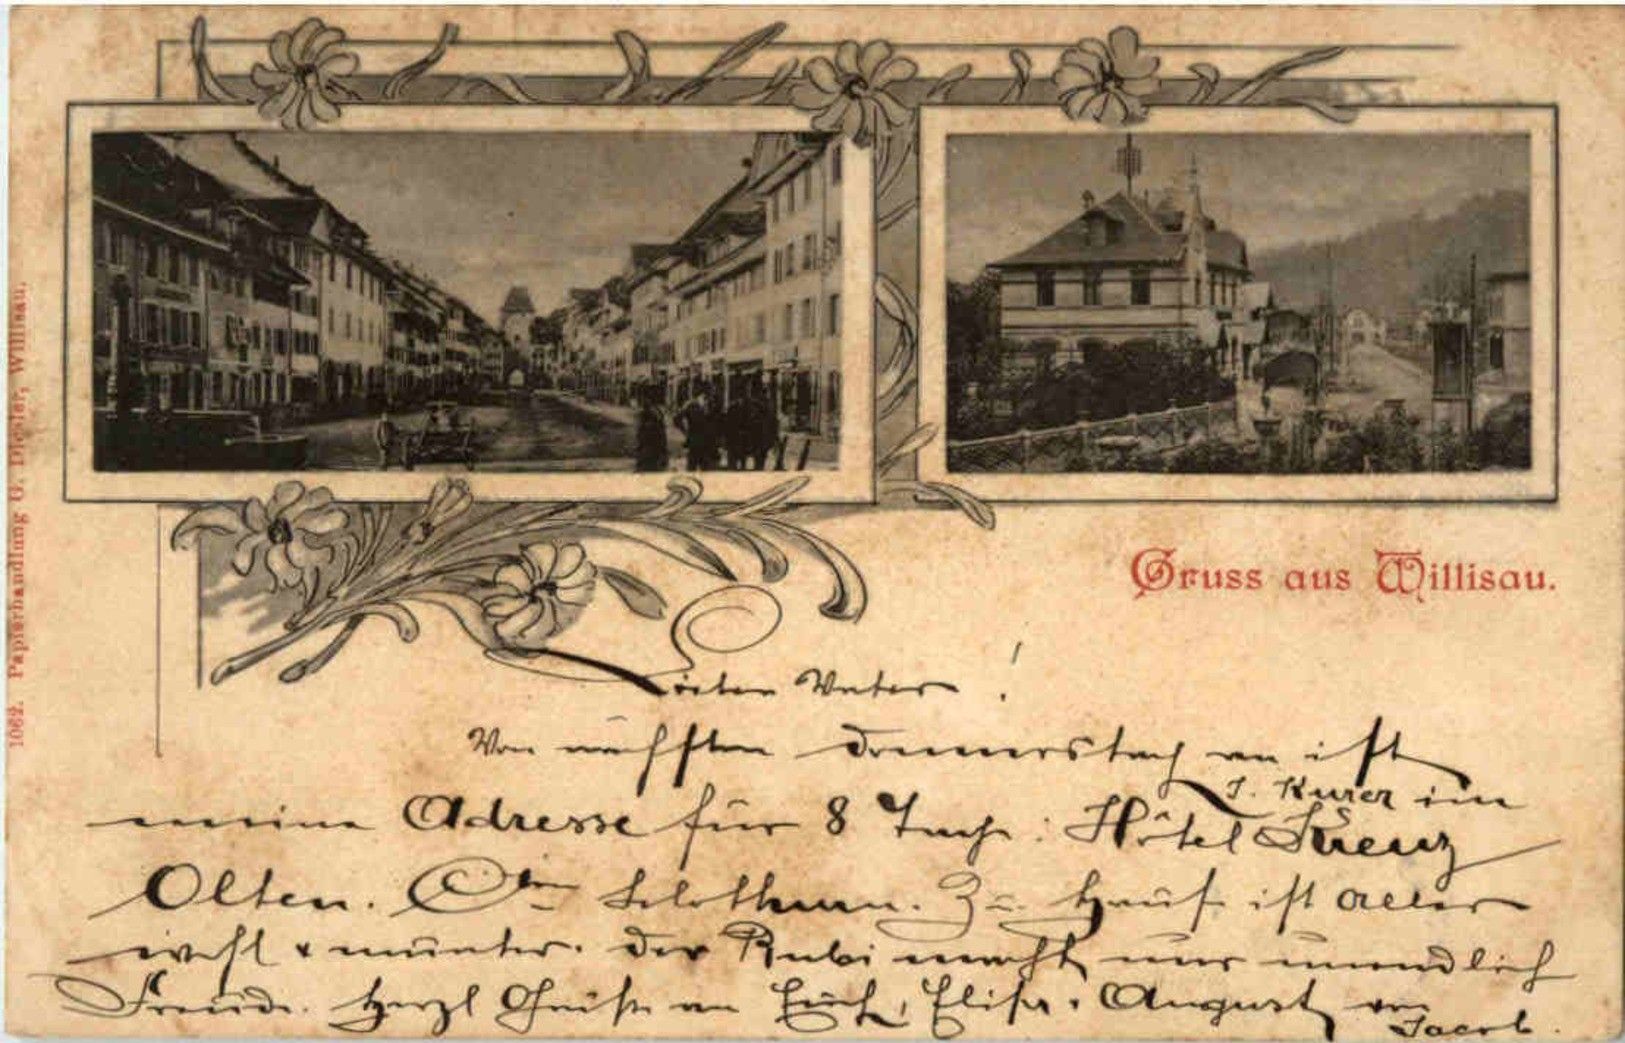 1062. Papierhandlung G. Disler, Willisau.
Gruss aus Willisau.
Lieber Vater !
Von nächsten Donnerstag an ist
meine Adresse für 8 Tage : J. Kurer im
Hôtel Kreuz
Olten. Ctn Solothurn. Zu Haus ist alles
wohl & munter. Der Rubi macht uns
Freude. Herzl Grüsse an Euch, Elise & August von
Jacob.